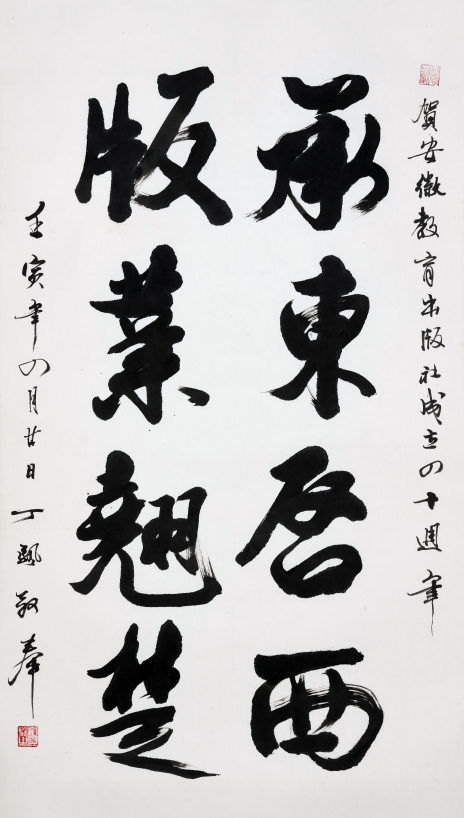 贺安徽教育出版社成立四十週年
承東啓西
版業翹楚
壬寅年四月廿日丁飙敬奉